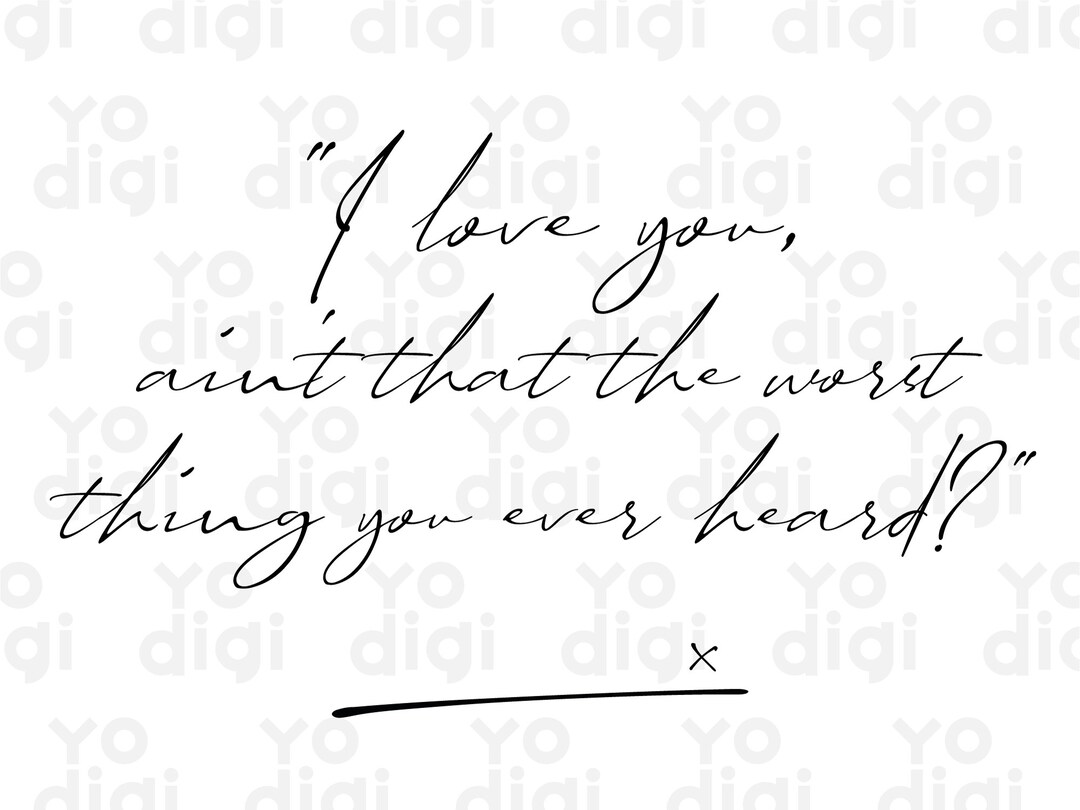 "I love you,
ain't that the worst
thing you ever heard?"
x
YO
digi